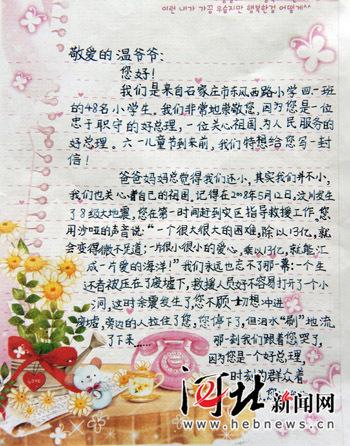 이런 내가 가끔 우습지만 행복한걸 어떻게^^
敬爱的温爷爷:
您好!
我们是来自石家庄市东风西路小学四一班
的48名小学生。我们非常地崇敬您,因为您是一位
忠于职守的好总理,一位关心祖国、为人民服务的
好总理。六一儿童节到来前,我们特想给您写一封
信!
爸爸妈妈总觉得我们还小,其实我们并不小,
我们也关心着自己的祖国。记得在2008年5月12日,汶川发
生了8级大地震,您在第一时间赶到灾区指导救援工作。您
用沙哑的声音说:“一个很大很大的困难,除以13亿,就
会变得微不足道;一份很小很小的爱心,乘以13亿,就能汇
成一片爱的海洋!”我们永远也忘不了那一幕:一个生
还者被压在了废墟下,救援人员好不容易打开了一个小
洞,这时余震发生了,您不顾一切想冲进
废墟,旁边的人拉住了您,您停下了,但泪水“刷”地流
了下来……
那一刻我们跟着您哭了,
因为您是一个好总理,
时刻为群众着
您
LOVE
河北新闻网
www.hebnews.cn